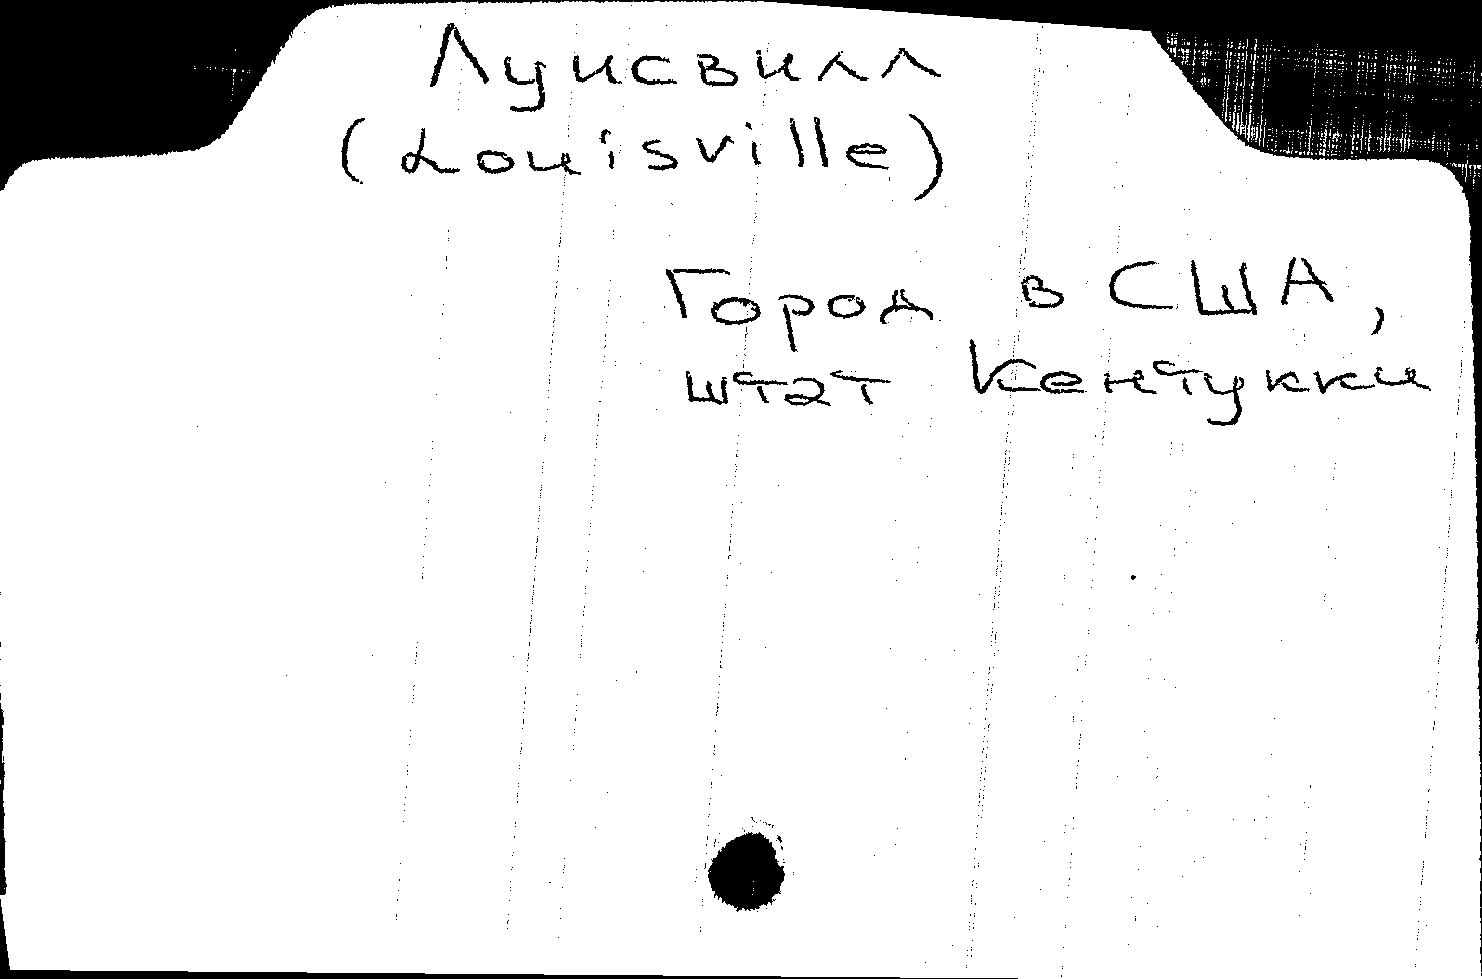 Луисвилл
(Louisville)
Город в США,
штат Кентукки